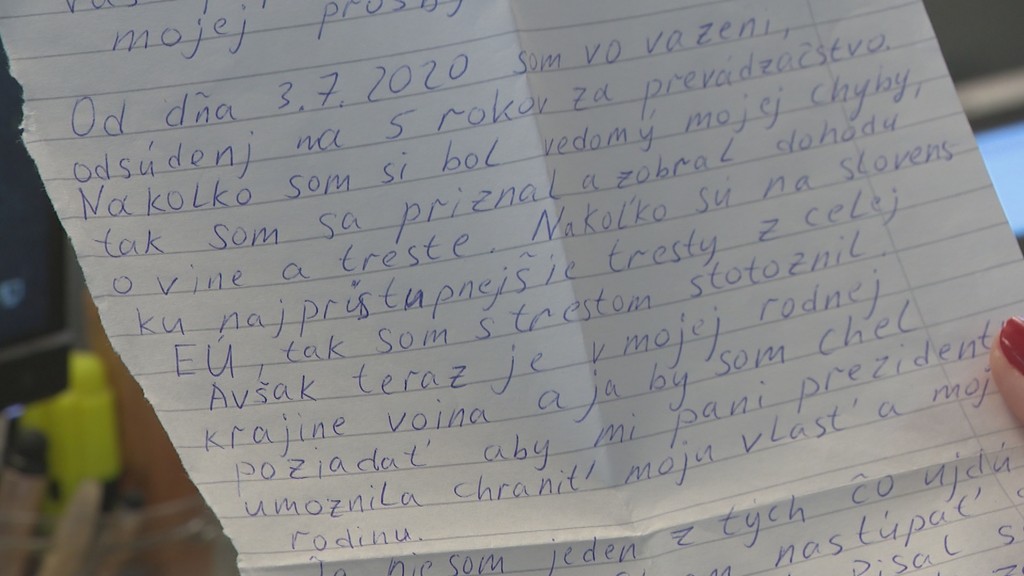 mojej prosby
Od dňa 3.7.2020 som vo vazeni,
odsúdenj na 5 rokov za prevádzačstvo.
Nakolko som si bol vedomý mojej chyby,
tak som sa priznal a zobral dohodu
o vine a treste. Nakoľko sú na slovens
ku najprístupnejšie tresty z celej
EÚ, tak som s trestom stotoznil.
Avšak teraz je v mojej rodnej
krajine vojna a ja by som chel
poziadať aby mi pani prezident
umoznila chraniť moju vlasť a moj
rodinu.
Ja nie som jeden z tých čo ujdú
nastúpať
pisal s